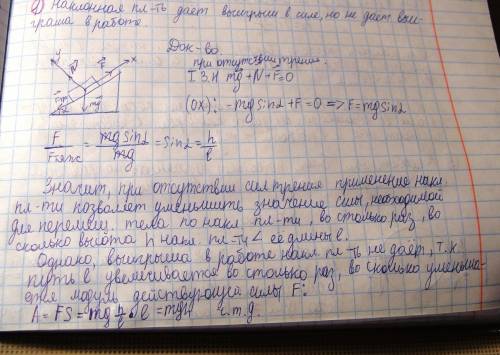 2) Наклонная пл-ть даёт выигрыш в силе, но не даёт выи-
граша в работе.
Док-во.
при отсутствии трения.
I З.Н mg+N+F=0
(OX): -mg sinα+F=0 => F=mg sinα
F/Fтяж = mg sinα/mg = sinα = h/l
Значит, при отсутствии сил трения применение накл.
пл-ти позволяет уменьшить значение силы, необходимой
для перемещ. тела по накл. пл-ти, во столько раз, во
сколько высота h накл. пл-ти < её длины l.
Однако, выигрыша в работе накл. пл-ть не даёт, т.к.
путь l увеличивается во столько раз, во сколько уменьша-
ется модуль действующей силы F:
A = FS = mg h/l • l = mgh ч.т.д.